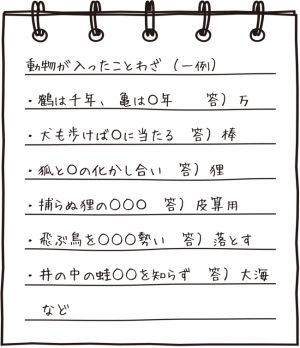 動物が入ったことわざ（一例）
・鶴は千年、亀は〇年　　答）万
・犬も歩けば〇に当たる　答）棒
・狐と〇の化かし合い　答）狸
・捕らぬ狸の〇〇〇　答）皮算用
・飛ぶ鳥を〇〇〇勢い　答）落とす
・井の中の蛙〇〇を知らず　答）大海
など